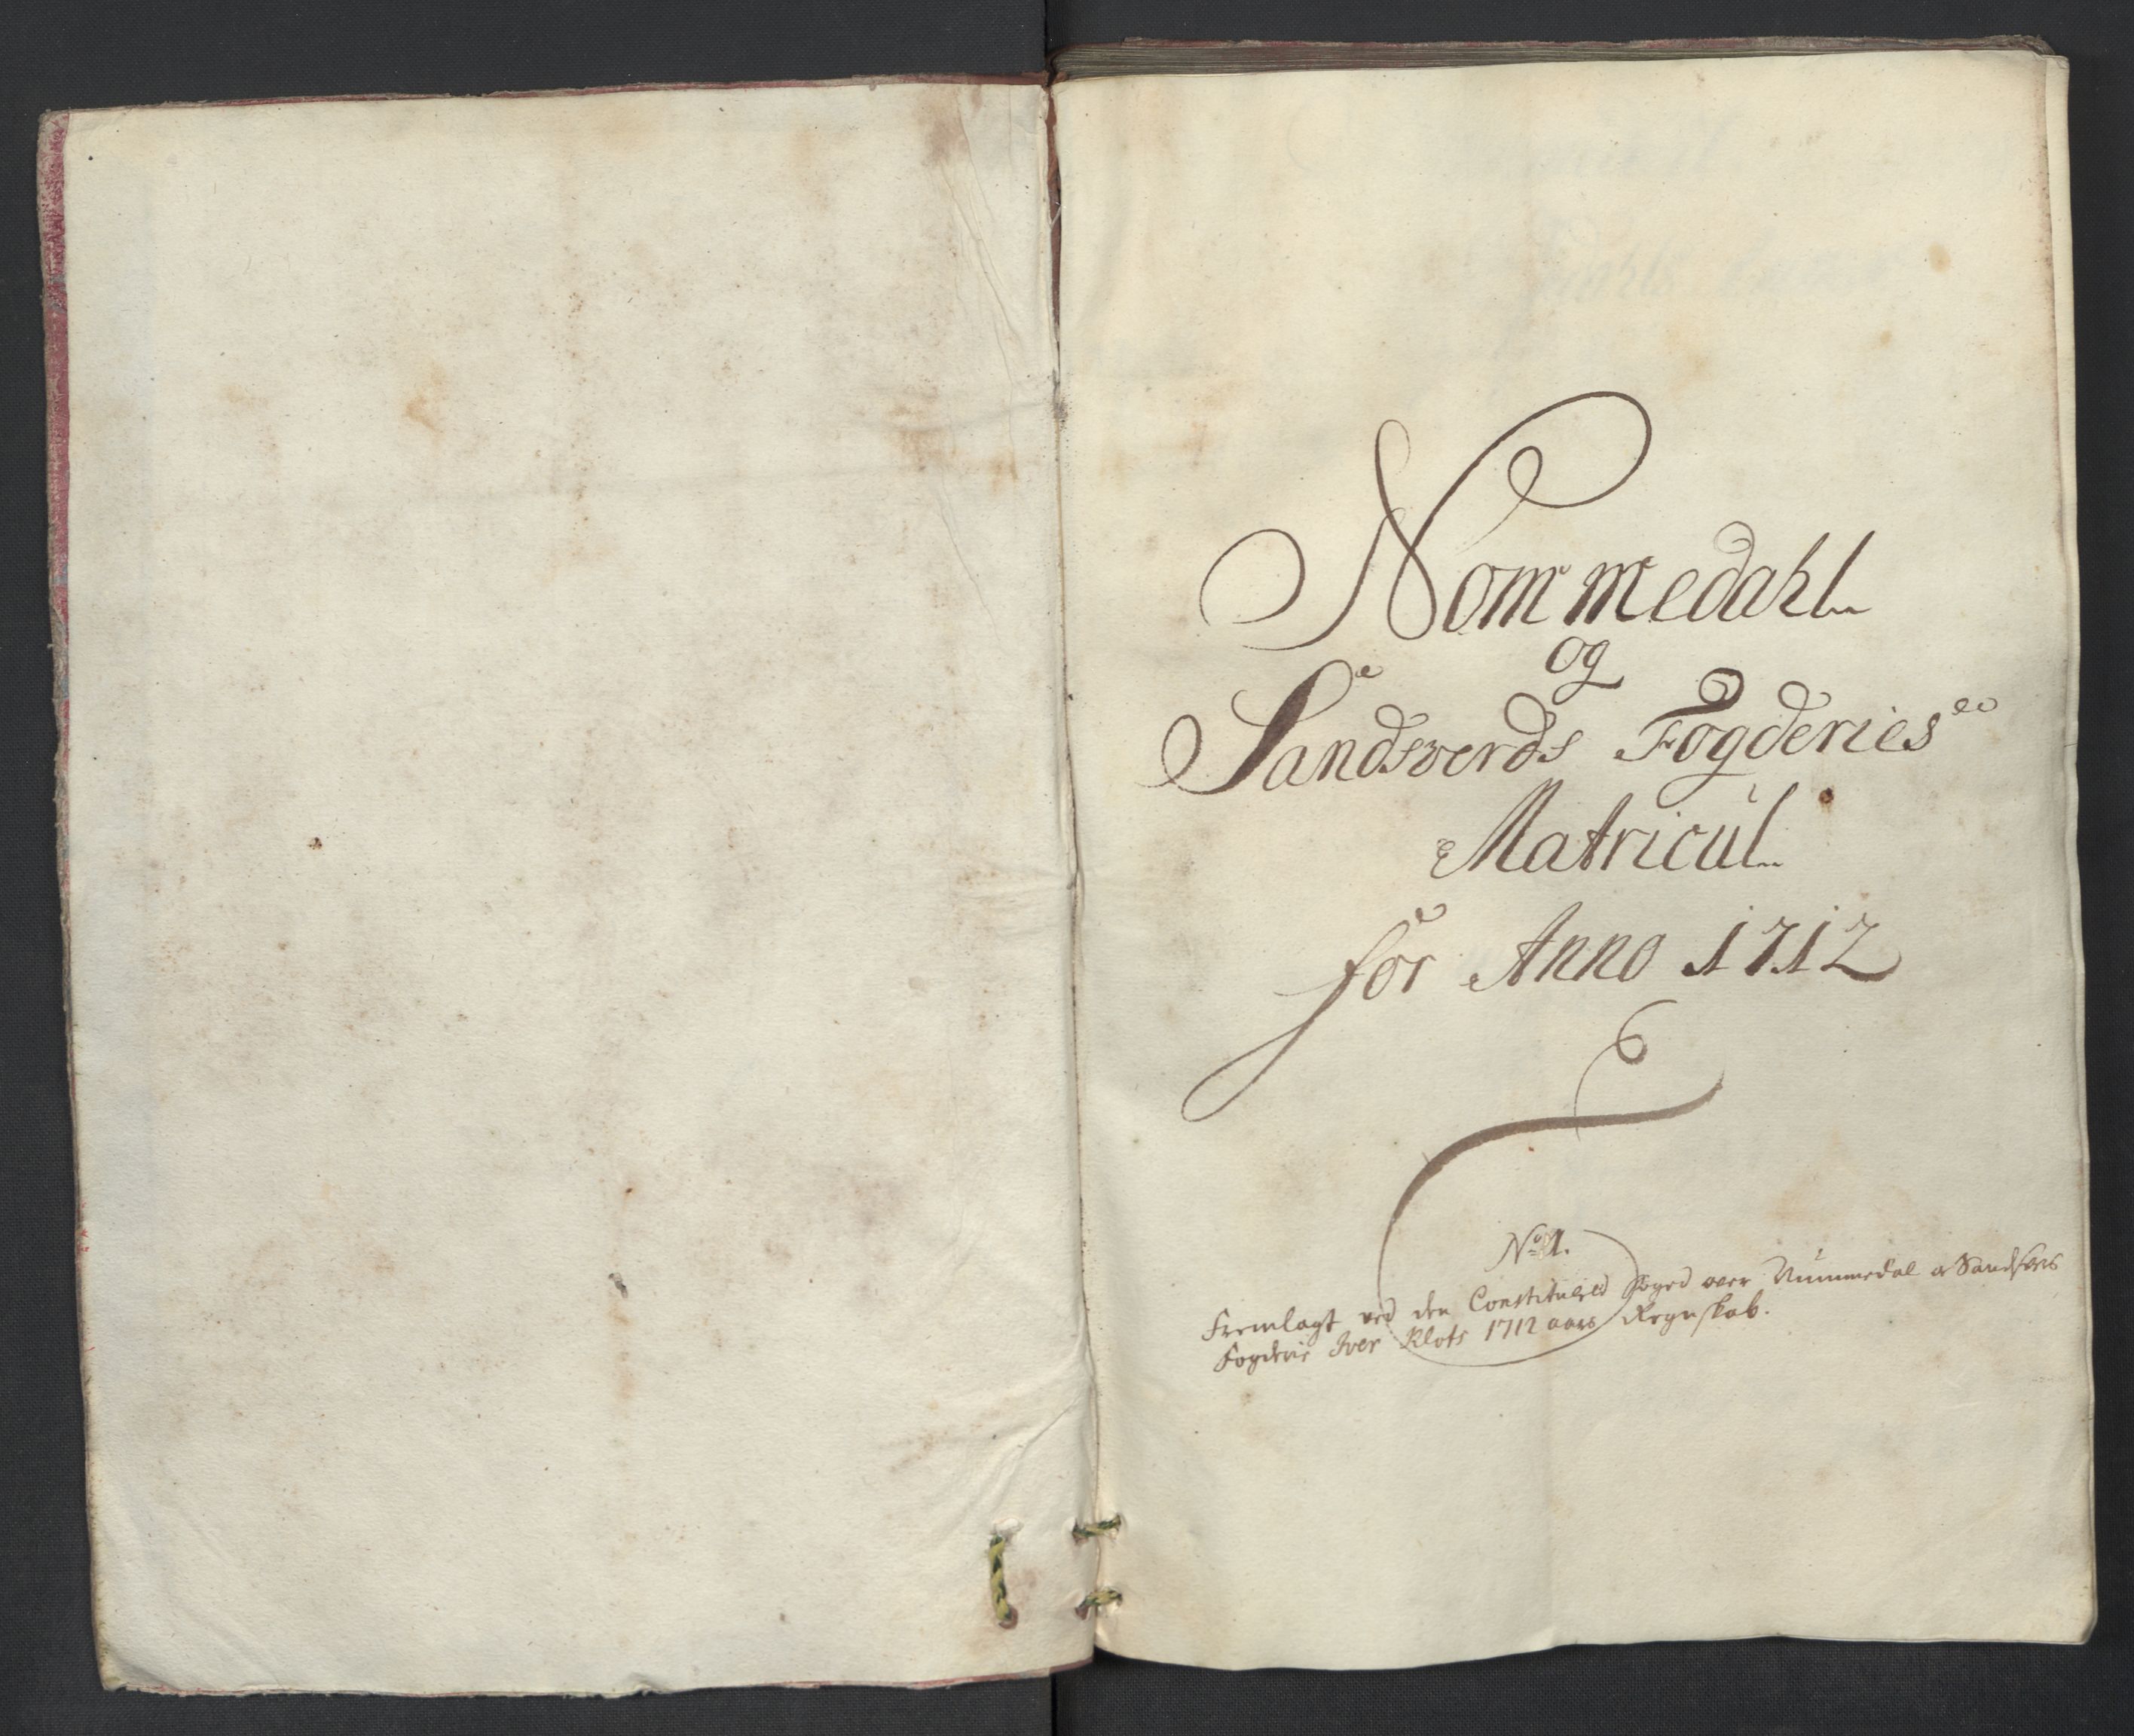 Nommedahl
og
Sandsverds Fogderies
Matricul
for Anno 1712
No 1.
Fremlagt ved den Constituered Foged over Nummedal og Sandsvers
Fogderie Iver Klots 1712 aars Regnskab.